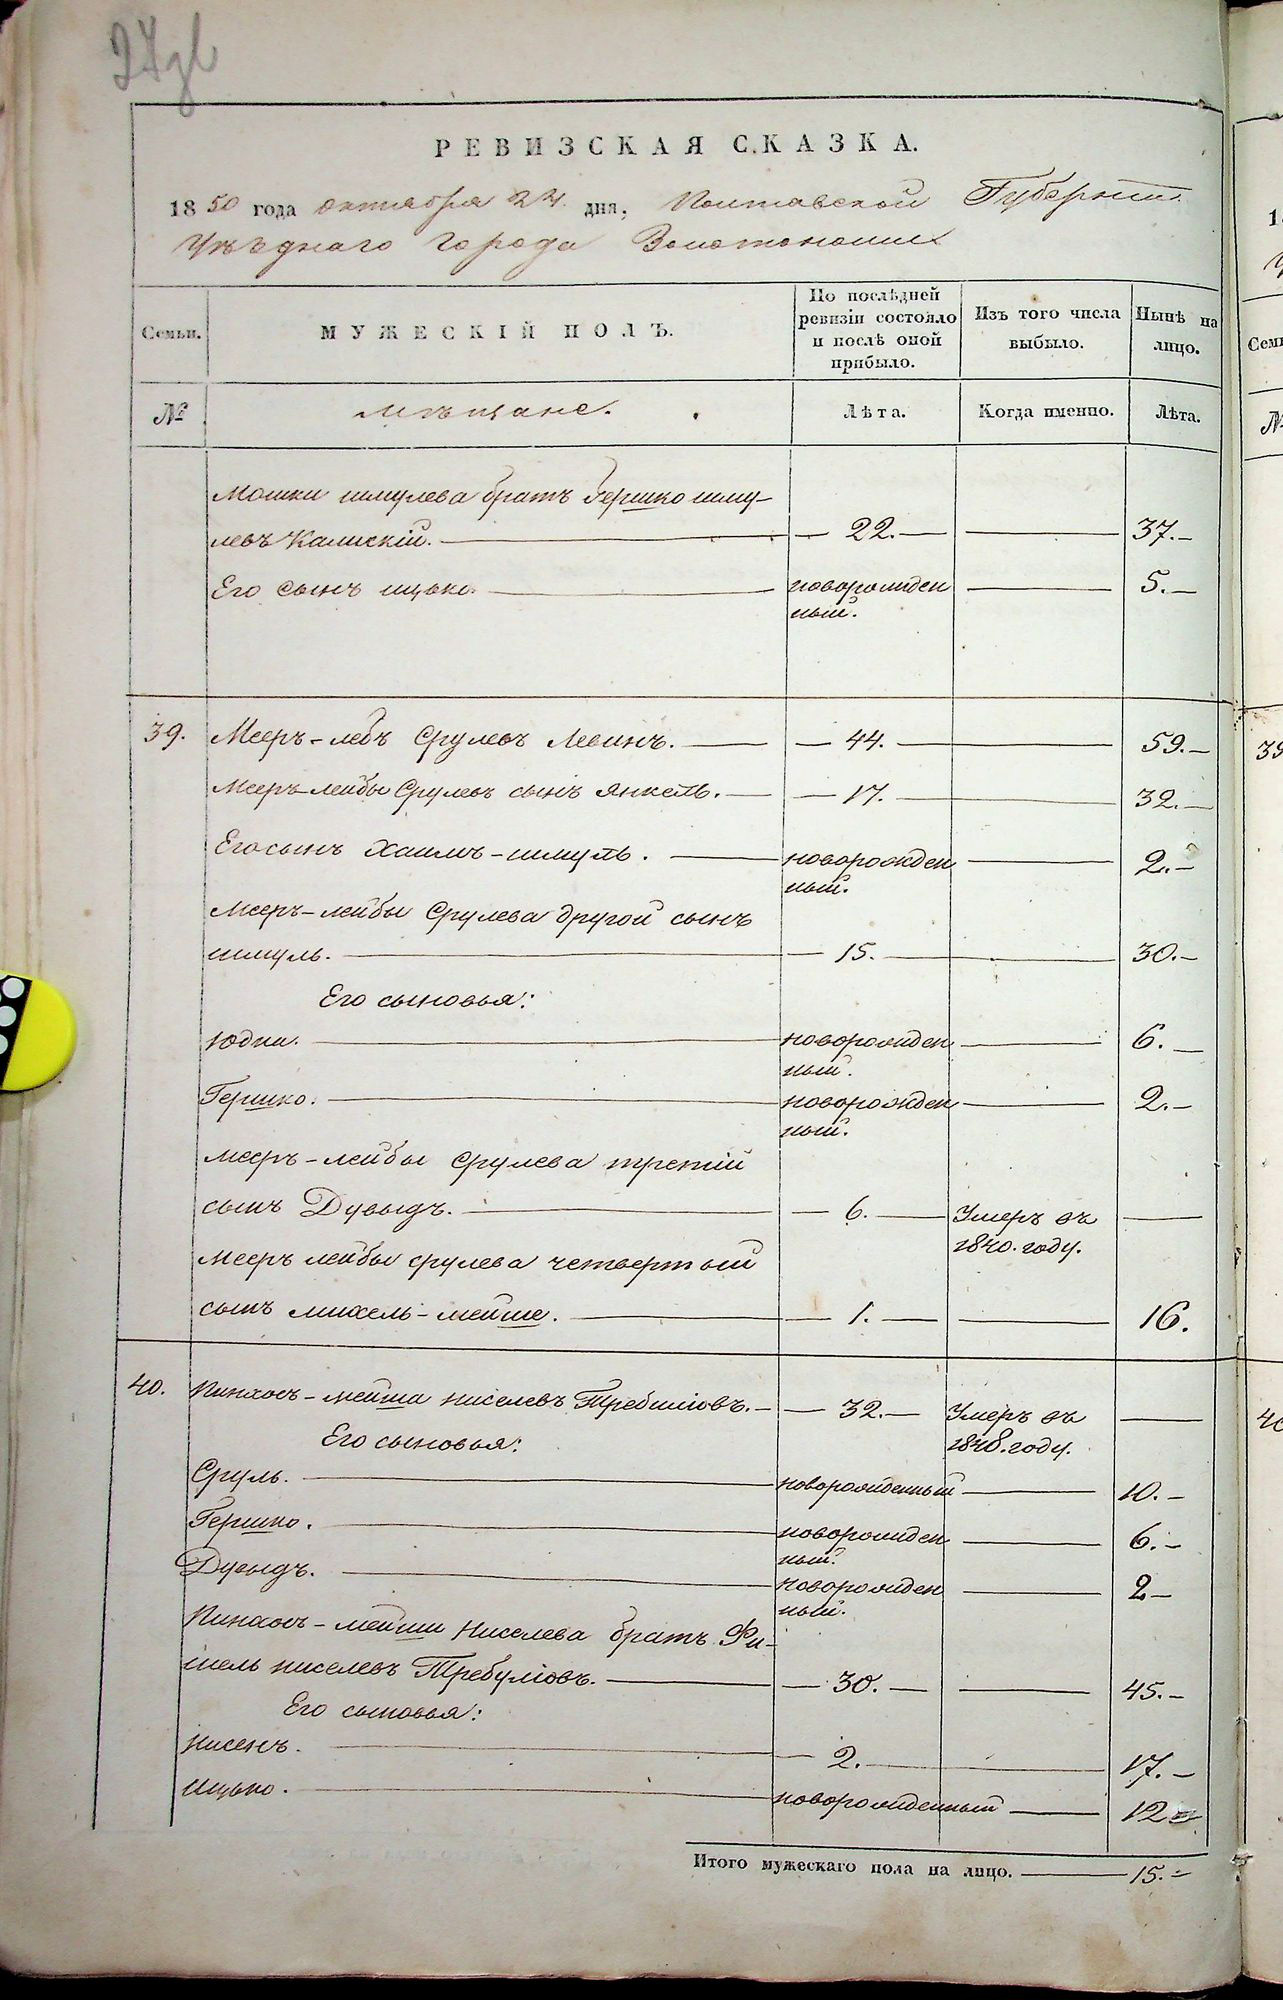 РЕВИЗСКАЯ СКАЗКА.
1850 года октября 24 дня, Полтавской Губернии
Уѣзднаго города Золотоноши
Семьи.
МУЖЕСКІЙ ПОЛЪ.
По послѣдней
ревизіи состояло
и послѣ оной
прибыло.
Изъ того числа
выбыло.
Нынѣ на
лицо.
№
Мѣщане.
Лѣта.
Когда именно.
Лѣта.
Мошки Шмулева братъ Гершко Шму-
левъ Калискій. — 22. — 37. —
Его сынъ Ицько. новорожден 5. —
ный.
39. Мееръ-Лебъ Срулевъ Левинъ. — 44. — 59. —
Мееръ-Лейбы Срулевъ сынъ Янкель. — 17. — 32. —
Его сынъ Хаимъ-Шмуль. новорожден 2. —
ный.
Мееръ-Лейбы Срулева другой сынъ
Шмуль. — 15. — 30. —
Его сыновья:
Юдка. новорожден 6. —
ный.
Гершко. новорожден 2. —
ный.
Мееръ-Лейбы Срулева третій
сынъ Дувыдъ. — 6. — Умеръ въ
1840. году.
Мееръ Лейбы Срулева четвертый
сынъ Михель-Мейше. — 1. — 16.
40. Пинхосъ-Мейша Ниселевъ — 32. — Умеръ въ
Его сыновья: 1848. году.
Сруль. новорожденный 10. —
Гершко. новорожден 6. —
ный.
Дувыдъ. новорожден 2 —
ный.
Пинхосъ-Мейши Ниселева братъ Фи-
шель Ниселевъ — 30. — 45. —
Его сыновья:
Нисенъ. — 2. — 17. —
Ицько. новорожденный — 12
Итого мужескаго пола на лицо. — 15. —